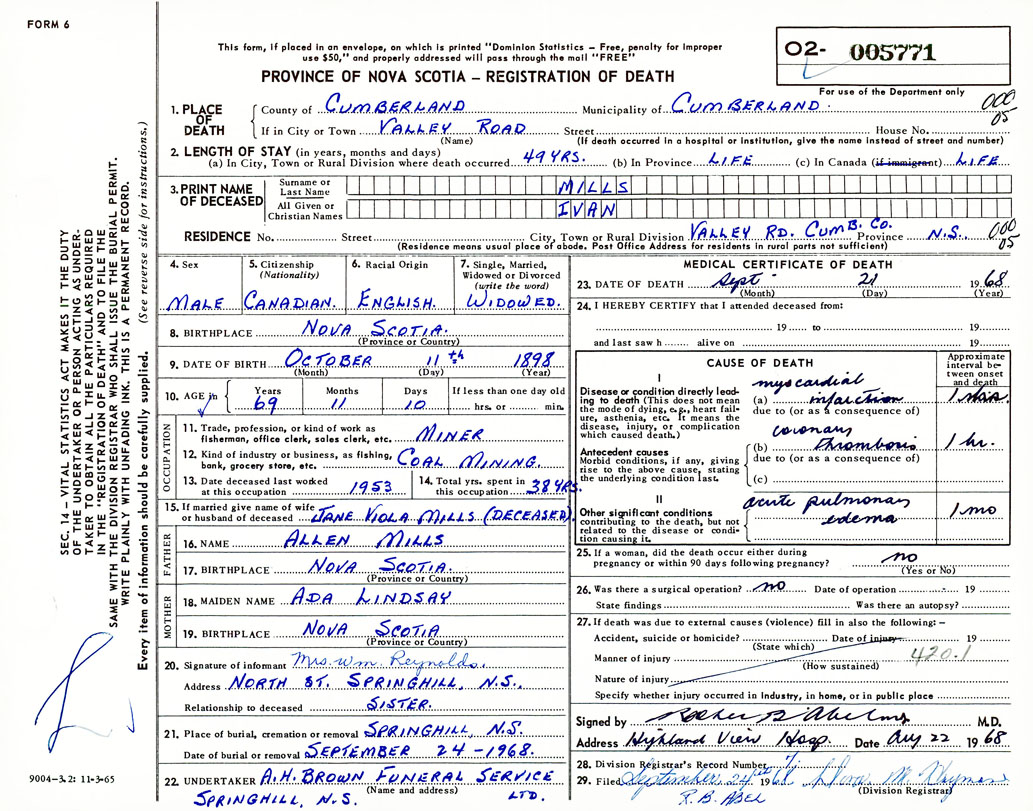 FORM 6
This form, if placed in an envelope, on which is printed "Dominion Statistics – Free, penalty for improper
use $50," and properly addressed will pass through the mail "FREE"
PROVINCE OF NOVA SCOTIA – REGISTRATION OF DEATH
02- 005771
For use of the Department only
1. PLACE OF DEATH
County of CUMBERLAND Municipality of CUMBERLAND. 000 05
If in City or Town VALLEY ROAD Street House No.
(Name) (If death occurred in a hospital or institution, give the name instead of street and number)
2. LENGTH OF STAY (in years, months and days)
(a) In City, Town or Rural Division where death occurred 49 YRS. (b) In Province LIFE (c) In Canada (if immigrant) LIFE
3. PRINT NAME OF DECEASED
Surname or Last Name MILLS
All Given or Christian Names IVAN
RESIDENCE No. Street City, Town or Rural Division VALLEY RD. CUMB. CO. Province N.S. 000 05
(Residence means usual place of abode. Post Office Address for residents in rural parts not sufficient)
4. Sex MALE
5. Citizenship (Nationality) CANADIAN.
6. Racial Origin ENGLISH.
7. Single, Married, Widowed or Divorced (write the word) WIDOWED.
8. BIRTHPLACE NOVA SCOTIA.
(Province or Country)
9. DATE OF BIRTH OCTOBER 11th 1898
(Month) (Day) (Year)
10. AGE in Years 69 Months 11 Days 10 If less than one day old hrs. or min.
OCCUPATION
11. Trade, profession, or kind of work as fisherman, office clerk, sales clerk, etc. MINER
12. Kind of industry or business, as fishing, bank, grocery store, etc. COAL MINING.
13. Date deceased last worked at this occupation 1953
14. Total yrs. spent in this occupation 38 YRS.
15. If married give name of wife or husband of deceased JANE VIOLA MILLS (DECEASED).
FATHER
16. NAME ALLEN MILLS
17. BIRTHPLACE NOVA SCOTIA.
(Province or Country)
MOTHER
18. MAIDEN NAME ADA LINDSAY
19. BIRTHPLACE NOVA SCOTIA
(Province or Country)
20. Signature of informant Mrs. Wm. Reynolds.
Address NORTH ST. SPRINGHILL, N.S.
Relationship to deceased SISTER.
21. Place of burial, cremation or removal SPRINGHILL, N.S.
Date of burial or removal SEPTEMBER 24 - 1968.
22. UNDERTAKER A.H. BROWN FUNERAL SERVICE LTD.
(Name and address)
SPRINGHILL, N.S.
MEDICAL CERTIFICATE OF DEATH
23. DATE OF DEATH Sept 21 1968
(Month) (Day) (Year)
24. I HEREBY CERTIFY that I attended deceased from:
19 to 19
and last saw h alive on 19
CAUSE OF DEATH
Approximate interval between onset and death
I
Disease or condition directly leading to death (This does not mean the mode of dying, e.g., heart failure, asthenia, etc. It means the disease, injury, or complication which caused death.)
(a) myocardial infarction
due to (or as a consequence of)
Antecedent causes
Morbid conditions, if any, giving rise to the above cause, stating the underlying condition last.
(b) coronary thrombosis 1 hr.
due to (or as a consequence of)
(c)
II
Other significant conditions
contributing to the death, but not related to the disease or condition causing it.
acute pulmonary edema 1 mo
25. If a woman, did the death occur either during pregnancy or within 90 days following pregnancy? no
(Yes or No)
26. Was there a surgical operation? no Date of operation 19
State findings Was there an autopsy?
27. If death was due to external causes (violence) fill in also the following: –
Accident, suicide or homicide? Date of injury 19
(State which)
Manner of injury 420.1
(How sustained)
Nature of injury
Specify whether injury occurred in Industry, in home, or in public place
Signed by M.D.
Address Highland View Hosp. Date Aug 22 1968
28. Division Registrar's Record Number
29. Filed September 24th 1968
(Division Registrar)
R.B. ABEL
SEC. 14 – VITAL STATISTICS ACT MAKES IT THE DUTY
OF THE UNDERTAKER OR PERSON ACTING AS UNDER-
TAKER TO OBTAIN ALL THE PARTICULARS REQUIRED
IN THE "REGISTRATION OF DEATH" AND TO FILE THE
SAME WITH THE DIVISION REGISTRAR WHO SHALL ISSUE THE BURIAL PERMIT.
WRITE PLAINLY WITH UNFADING INK. THIS IS A PERMANENT RECORD.
Every item of information should be carefully supplied. (See reverse side for instructions.)
9004–3.2: 11-3-65